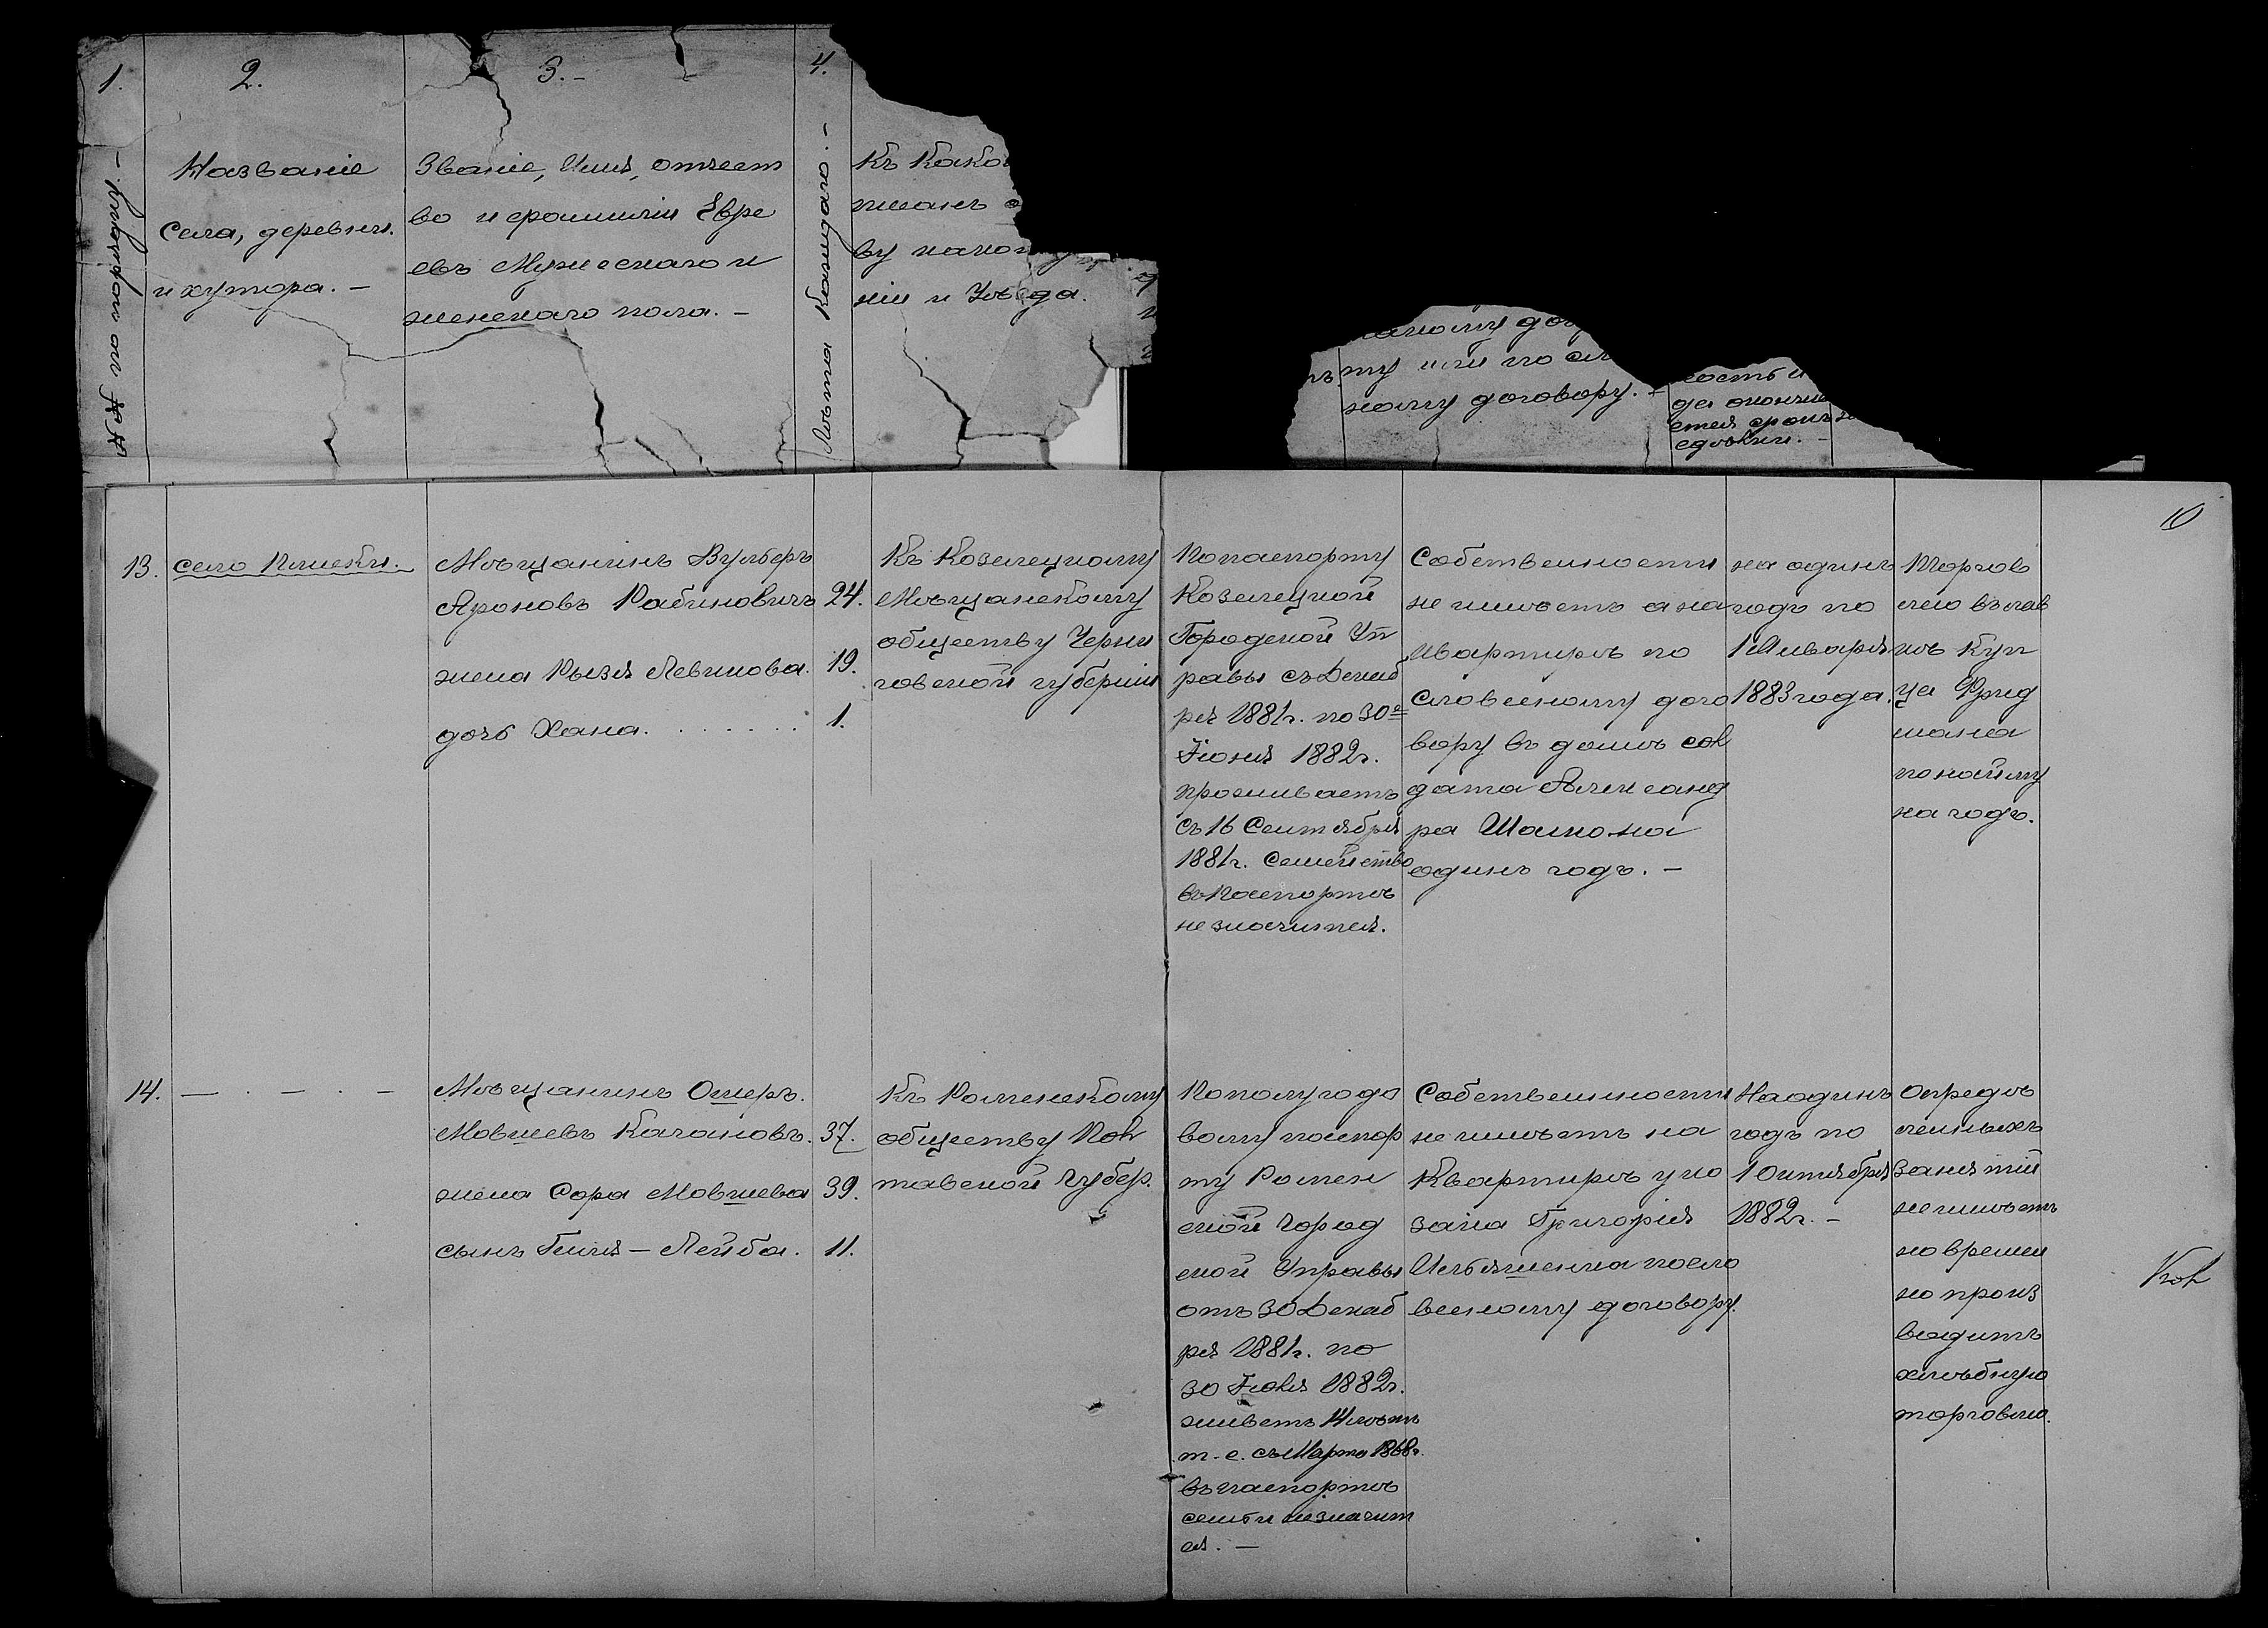 1.
№№ по порядку. –
2.
Названіе
села, деревни.
и хутора. –
3. –
Званіе, Имя, отчест
во и фамиліи Евре
евъ Мужескаго и
женскаго пола. –
4.
Къ како
ву
ніи и Уѣзда.
ту или по
ному договору. –
13.
село Плиски.
Мѣщанинъ Вульфъ
Ароновъ Рабиновичъ
24.
жена Рызя Левикова.
19.
дочь Хана. . . . . . .
1.
Къ Козелецкому
Мѣщанскому
обществу Черни
говской губерніи
По паспорту
Козелецкой
Городской Уп
равы съ Декаб
ря 1881г. по 30е
Іюня 1882г.
проживаетъ
съ 16 Сентября
1881г. Семейство
въ паспортѣ
не значится.
Собственности
не имѣетъ а на
квартирѣ по
словесному дого
вору въ домѣ сол
дата Александ
ра Шамо на
одинъ годъ. –
на одинъ
годъ по
1 Января
1883 года.
Торгов
лею въ лав
кѣ куп
ца Фрид
мана
по найму
на годъ.
10
14.
– . – . –
Мѣщанинъ Ошеръ.
Мовшевъ Качановъ.
37.
жена Сора Мовшева
39.
сынъ Гиля – Лейба.
11.
Къ Роменскому
обществу Пол
тавской Губер.
По полугодо
вому паспор
ту Ромен
ской Город
ской Управы
отъ 30 Декаб
ря 1881г. по
30 Іюля 1882г.
живетъ 14 лѣтъ
т. е. съ Марта 1868г.
въ паспортѣ
семьи не значит
ся. –
Собственности
не имѣетъ на
Квартирѣ у ко
зака Григорія
Ильяшенка посло
весному договору.
На одинъ
годъ по
1 Октября
1882г. –
Опредѣ
ленныхъ
занятій
не имѣетъ
но времен
но произ
водитъ
хлѣбную
торговлю.